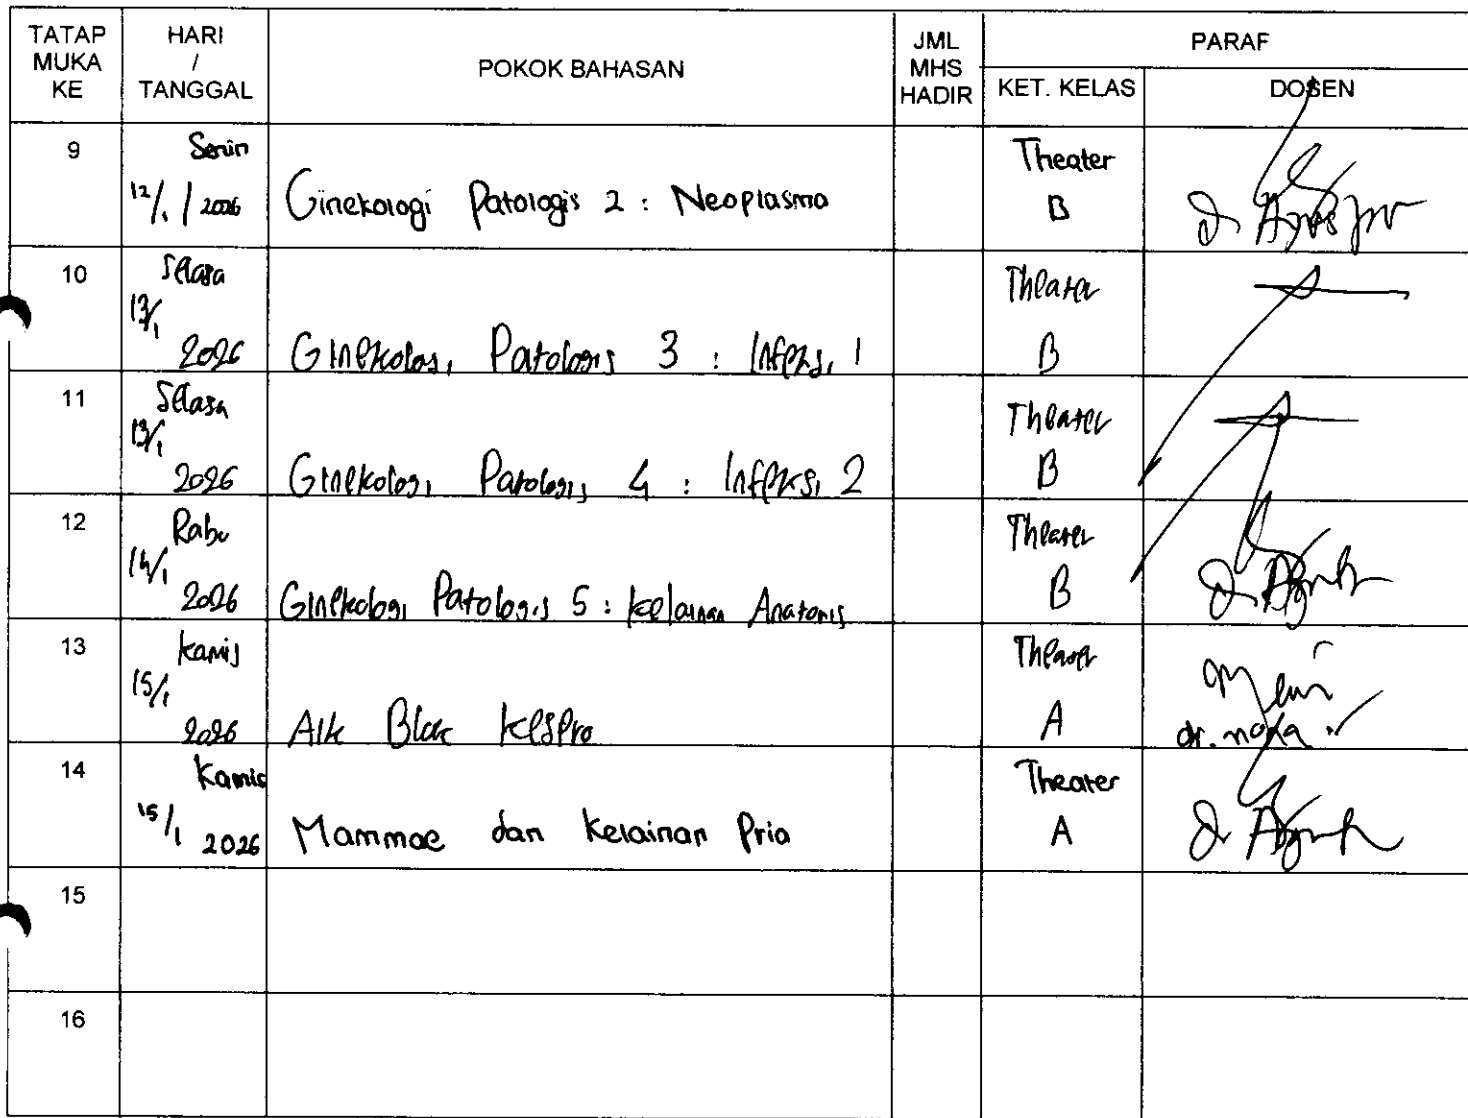 TATAP MUKA KE
HARI / TANGGAL
POKOK BAHASAN
JML MHS HADIR
PARAF
KET. KELAS
DOSEN
9 Senin 12/1/2026 Ginekologi Patologis 2 : Neoplasma Theater B
10 Selasa 13/1 2026 Ginekologi Patologis 3 : Infeksi 1 Theater B
11 Selasa 13/1 2026 Ginekologi Patologis 4 : Infeksi 2 Theater B
12 Rabu 14/1 2026 Ginekologi Patologis 5 : kelainan Anatomis Theater B
13 kamis 15/1 2026 AIK Blok kespro Theater A
14 Kamis 15/1 2026 Mammae dan kelainan Pria Theater A
15
16